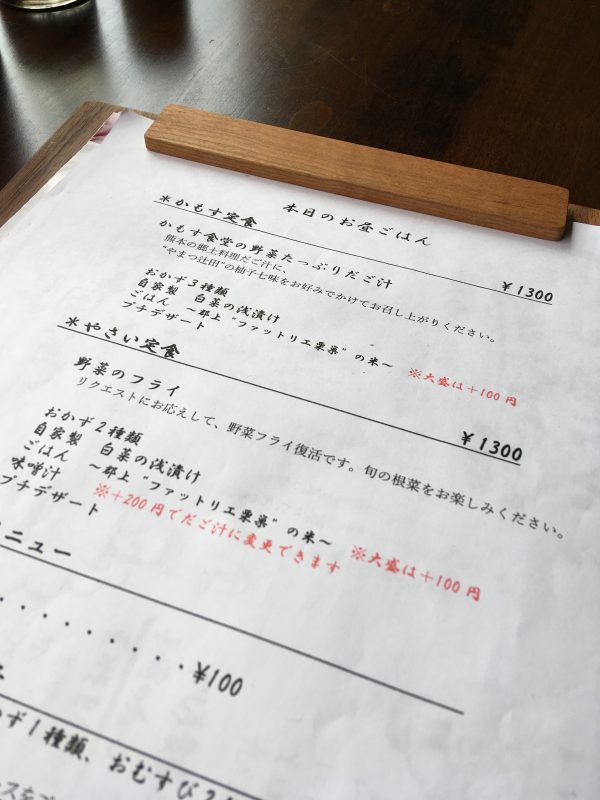 本日のお昼ごはん
＊かもす定食 ¥1300
かもす食堂の野菜たっぷりだご汁
熊本の郷土料理だご汁に、
"やまつ辻田"の柚子七味をお好みでかけてお召し上がりください。
おかず3種類
自家製 白菜の浅漬け
ごはん ～郡上"ファットリエ栗巣"の米～ ※大盛は＋100円
プチデザート
＊やさい定食 ¥1300
野菜のフライ
リクエストにお応えして、野菜フライ復活です。旬の根菜をお楽しみください。
おかず2種類
自家製 白菜の浅漬け
ごはん ～郡上"ファットリエ栗巣"の米～ ※大盛は＋100円
味噌汁 ※＋200円でだご汁に変更できます
プチデザート
ニュー
・・・・・・・・・¥100
ず1種類、おむすび2